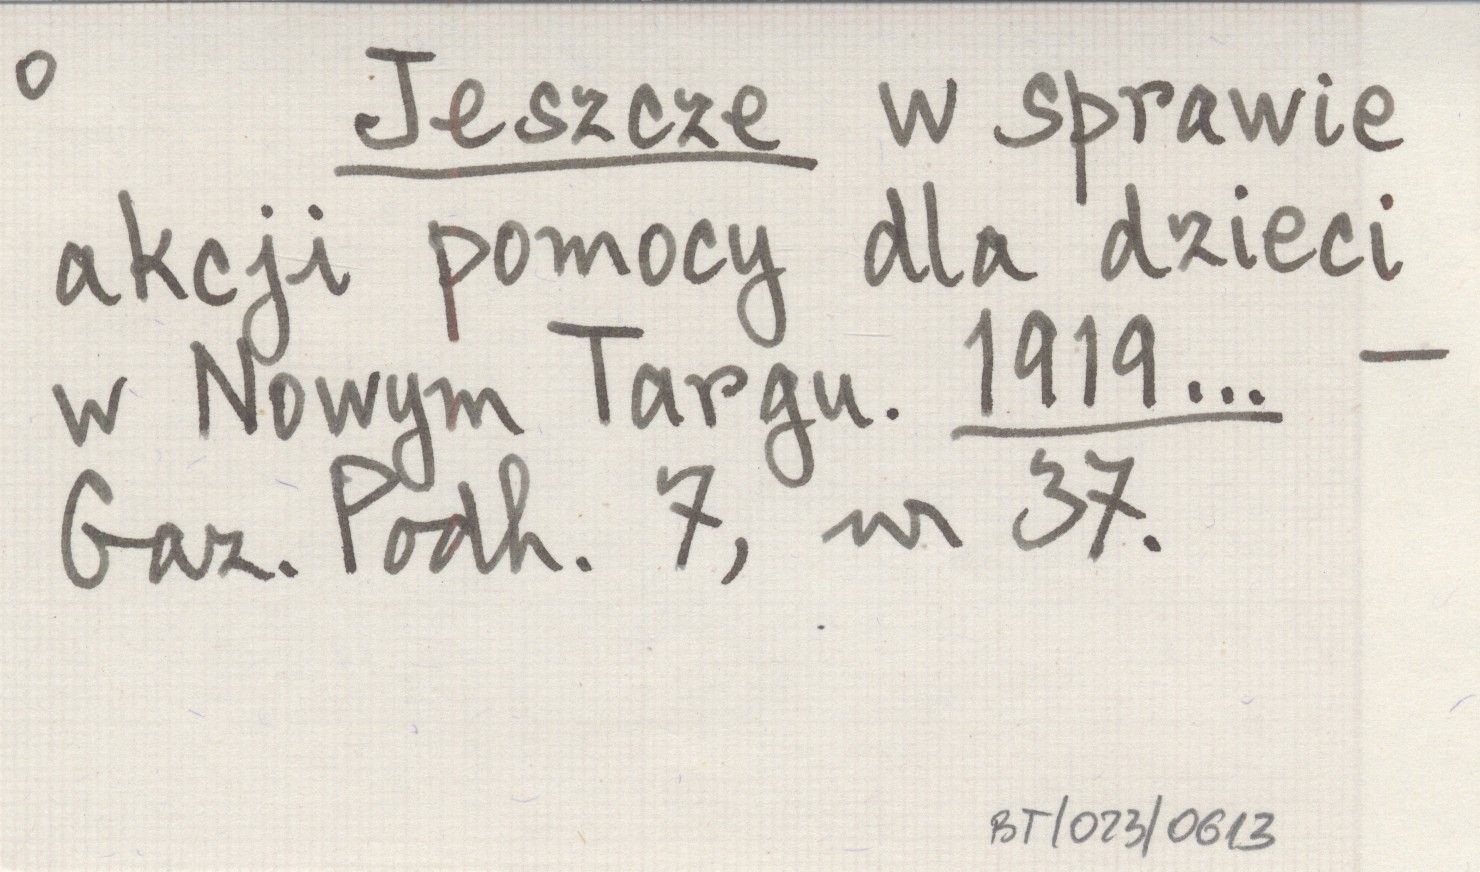 o Jeszcze w sprawie
akcji pomocy dla dzieci
w Nowym Targu. 1919... —
Gaz. Podh. 7, nr 37.
BT/023/0613